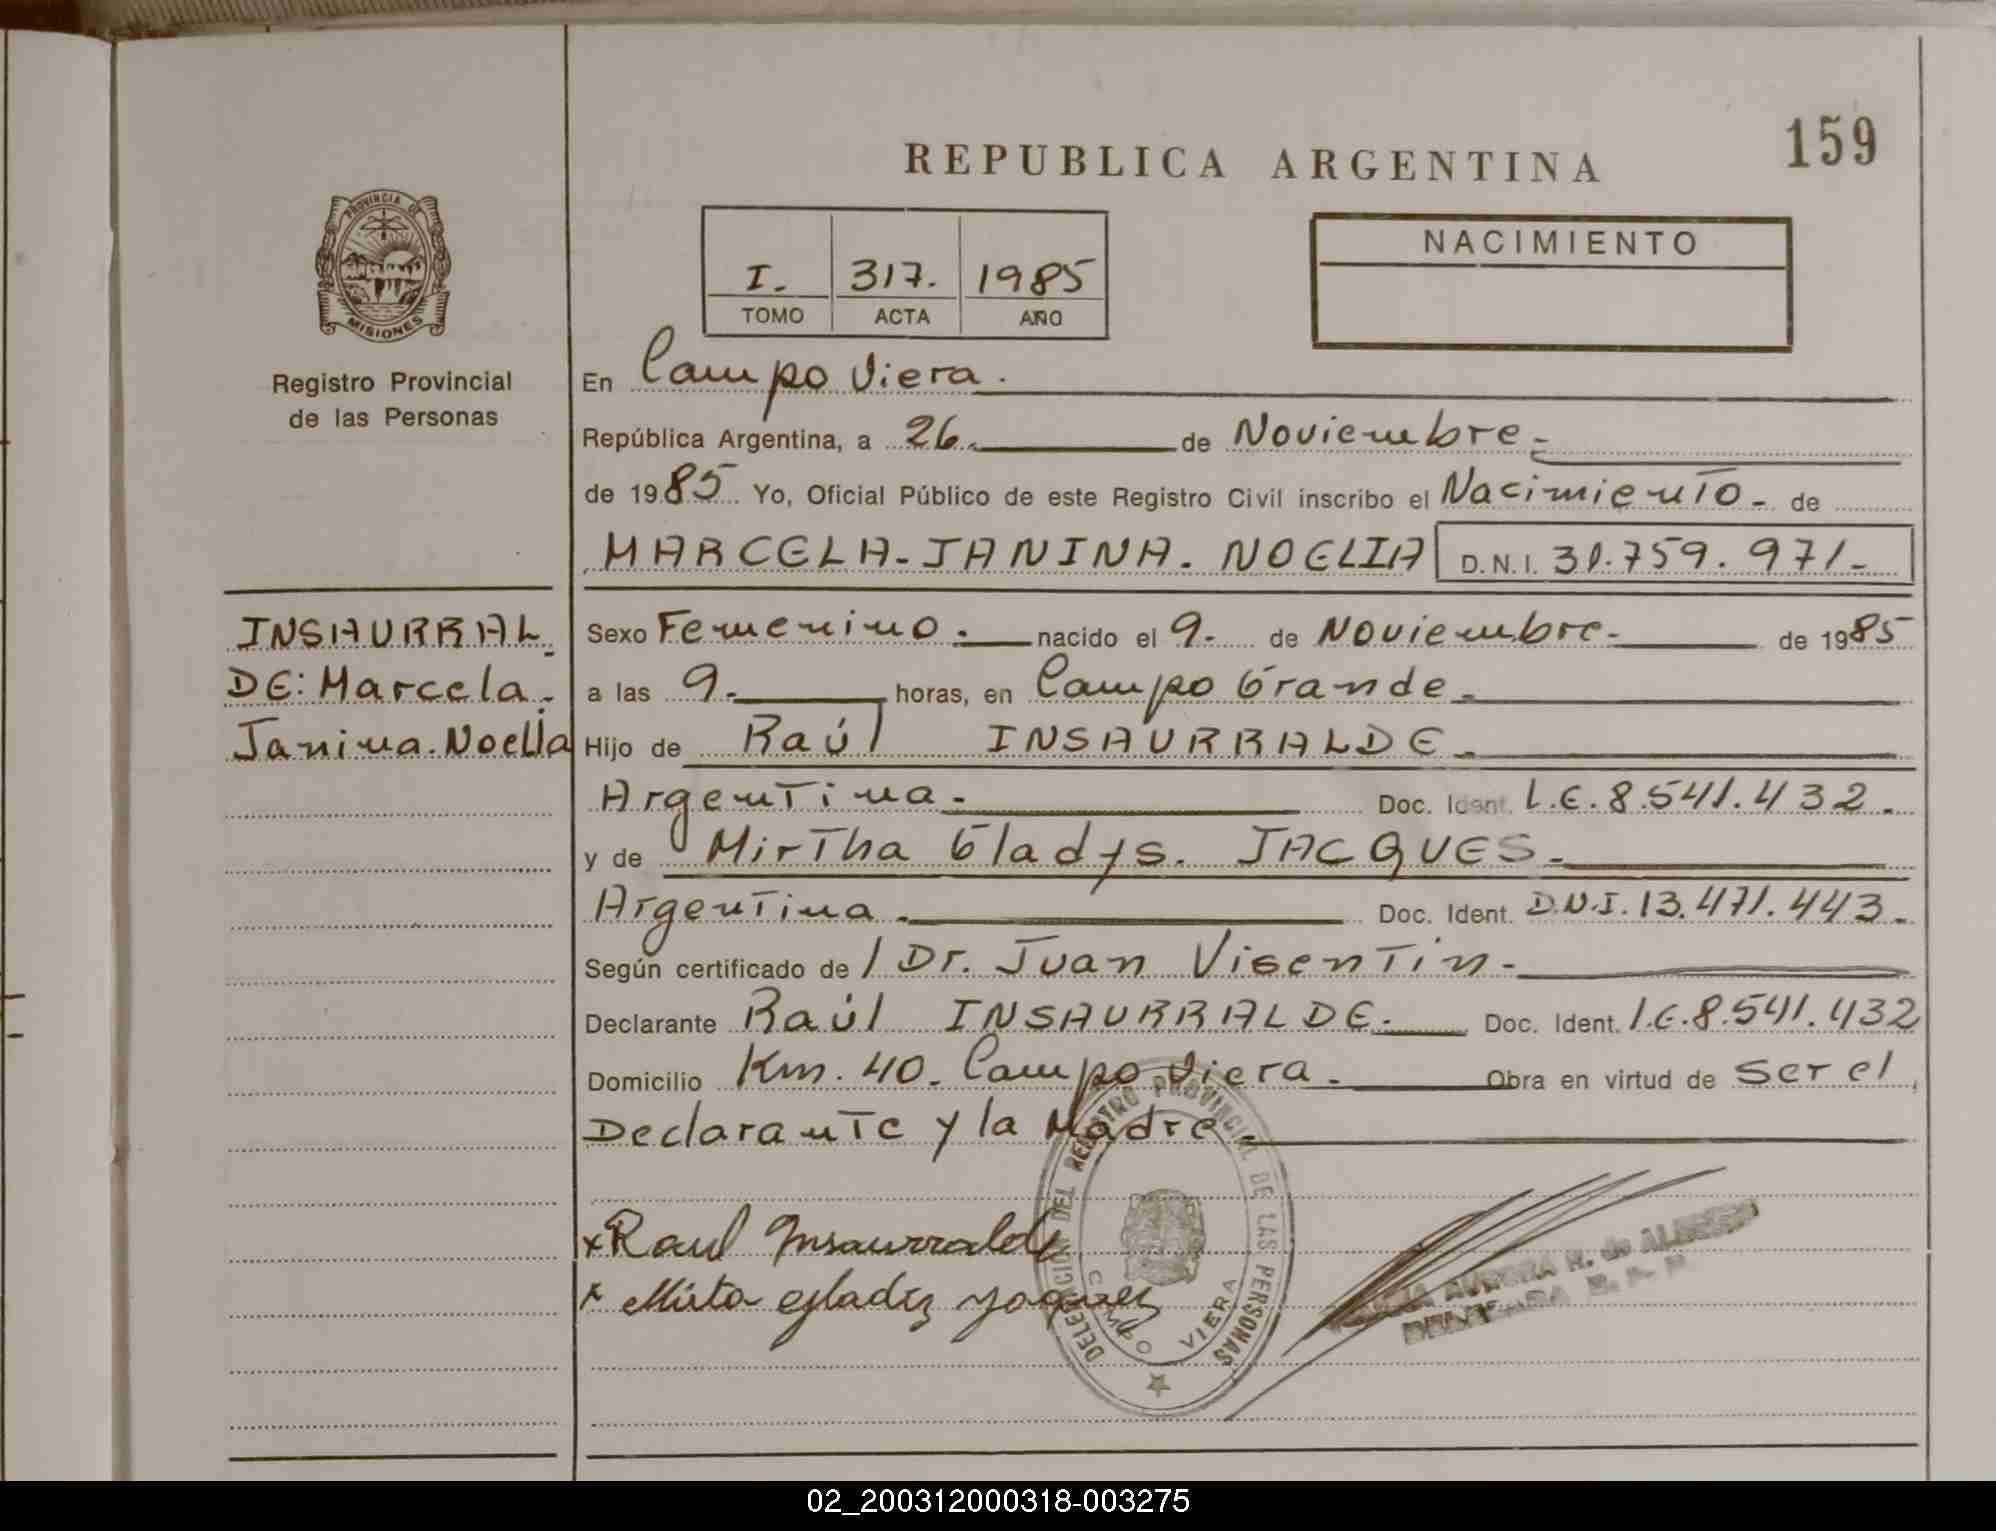 159
REPUBLICA ARGENTINA
PROVINCIA DE
MISIONES
Registro Provincial
de las Personas
I. 317. 1985
TOMO ACTA AÑO
NACIMIENTO
En Campo Viera.
República Argentina, a 26. de Noviembre.
de 1985 Yo, Oficial Público de este Registro Civil inscribo el Nacimiento. de
MARCELA-JANINA. NOELIA D.N.I. 31.759.971-
INSAURRAL-
DE: Marcela.
Janina. Noelia
Sexo Femenino. nacido el 9. de Noviembre. de 1985
a las 9. horas, en Campo Grande.
Hijo de Raúl INSAURRALDE.
Argentina. Doc. Ident. L.E. 8.541.432.
y de Mirtha Gladys. JACQUES.
Argentina. Doc. Ident. D.N.I. 13.471.443.
Según certificado de / Dr. Juan Visentin.
Declarante Raúl INSAURRALDE. Doc. Ident. L.E. 8.541.432
Domicilio Km. 40. Campo Viera. Obra en virtud de ser el
Declarante y la Madre.
x Raul Insaurralde
x Mirta Gladez Jaquez
DELEGACION DEL REGISTRO PROVINCIAL DE LAS PERSONAS
CAMPO VIERA
AURORA R. de
02_200312000318-003275